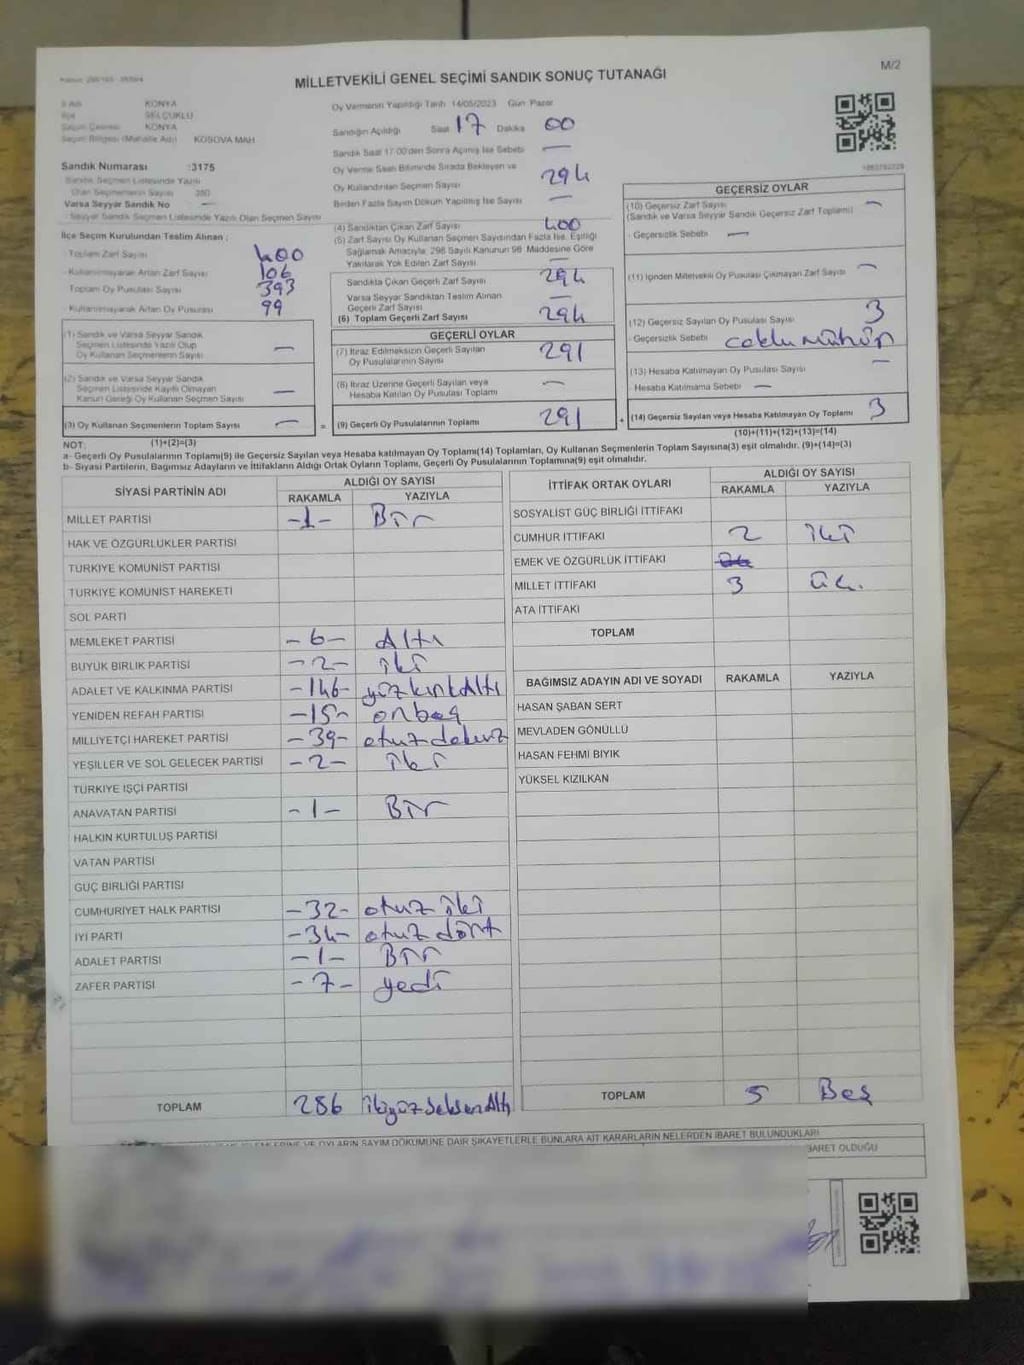 MİLLETVEKİLİ GENEL SEÇİMİ SANDIK SONUÇ TUTANAĞI
M/2
İl Adı KONYA
İlçe SELÇUKLU
Seçim Çevresi KONYA
Seçim Bölgesi (Mahalle Adı) KOSOVA MAH
Sandık Numarası :3175
Sandık Seçmen Listesinde Yazılı
Olan Seçmenlerin Sayısı
Varsa Seyyar Sandık No —
Seyyar Sandık Seçmen Listesinde Yazılı Olan Seçmen Sayısı
İlçe Seçim Kurulundan Teslim Alınan :
Toplam Zarf Sayısı 400
Kullanılmayarak Artan Zarf Sayısı 106
Toplam Oy Pusulası Sayısı 393
Kullanılmayarak Artan Oy Pusulası 99
(1) Sandık ve Varsa Seyyar Sandık
Seçmen Listesinde Yazılı Olup
Oy Kullanan Seçmenlerin Sayısı —
(2) Sandık ve Varsa Seyyar Sandık
Seçmen Listesinde Kayıtlı Olmayan
Kanun Gereği Oy Kullanan Seçmen Sayısı —
(3) Oy Kullanan Seçmenlerin Toplam Sayısı —
(1)+(2)=(3)
Oy Vermenin Yapıldığı Tarih 14/05/2023 Gün Pazar
Sandığın Açıldığı Saat 17 Dakika 00
Sandık Saat 17:00'den Sonra Açılmış İse Sebebi —
Oy Verme Saati Bitiminde Sırada Bekleyen ve
Oy Kullandırılan Seçmen Sayısı 294
Birden Fazla Sayım Dökum Yapılmış İse Sayısı —
(4) Sandıktan Çıkan Zarf Sayısı 400
(5) Zarf Sayısı Oy Kullanan Seçmen Sayısından Fazla İse, Eşitliği
Sağlamak Amacıyla, 298 Sayılı Kanunun 98. Maddesine Göre
Yakılarak Yok Edilen Zarf Sayısı —
Sandıkta Çıkan Geçerli Zarf Sayısı 294
Varsa Seyyar Sandıktan Teslim Alınan
Geçerli Zarf Sayısı —
(6) Toplam Geçerli Zarf Sayısı 294
GEÇERLİ OYLAR
(7) İtiraz Edilmeksizin Geçerli Sayılan
Oy Pusulalarının Sayısı 291
(8) İtiraz Üzerine Geçerli Sayılan veya
Hesaba Katılan Oy Pusulası Toplamı —
= (9) Geçerli Oy Pusulalarının Toplamı 291 +
GEÇERSİZ OYLAR
(10) Geçersiz Zarf Sayısı —
(Sandık ve Varsa Seyyar Sandık Geçersiz Zarf Toplamı)
- Geçersizlik Sebebi —
(11) İçinden Milletvekili Oy Pusulası Çıkmayan Zarf Sayısı —
(12) Geçersiz Sayılan Oy Pusulası Sayısı 3
- Geçersizlik Sebebi coklu mühür
(13) Hesaba Katılmayan Oy Pusulası Sayısı —
- Hesaba Katılmama Sebebi —
(14) Geçersiz Sayılan veya Hesaba Katılmayan Oy Toplamı 3
(10)+(11)+(12)+(13)=(14)
NOT:
a- Geçerli Oy Pusulalarının Toplamı(9) ile Geçersiz Sayılan veya Hesaba katılmayan Oy Toplamı(14) Toplamları, Oy Kullanan Seçmenlerin Toplam Sayısına(3) eşit olmalıdır. (9)+(14)=(3)
b- Siyasi Partilerin, Bağımsız Adayların ve İttifakların Aldığı Ortak Oyların Toplamı, Geçerli Oy Pusulalarının Toplamına(9) eşit olmalıdır.
SİYASİ PARTİNİN ADI ALDIĞI OY SAYISI
RAKAMLA YAZIYLA
MİLLET PARTİSİ -1- Bir
HAK VE ÖZGÜRLÜKLER PARTİSİ
TÜRKİYE KOMÜNİST PARTİSİ
TÜRKİYE KOMÜNİST HAREKETİ
SOL PARTİ
MEMLEKET PARTİSİ -6- Altı
BÜYÜK BİRLİK PARTİSİ -2- iki
ADALET VE KALKINMA PARTİSİ -146- yüzkırkAltı
YENİDEN REFAH PARTİSİ -15- onbeş
MİLLİYETÇİ HAREKET PARTİSİ -39- otuzdokuz
YEŞİLLER VE SOL GELECEK PARTİSİ -2- iki
TÜRKİYE İŞÇİ PARTİSİ
ANAVATAN PARTİSİ -1- Bir
HALKIN KURTULUŞ PARTİSİ
VATAN PARTİSİ
GÜÇ BİRLİĞİ PARTİSİ
CUMHURİYET HALK PARTİSİ -32- otuz iki
İYİ PARTİ -34- otuz dört
ADALET PARTİSİ -1- Bir
ZAFER PARTİSİ -7- yedi
TOPLAM 286 ikiyüzSeksenAltı
İTTİFAK ORTAK OYLARI ALDIĞI OY SAYISI
RAKAMLA YAZIYLA
SOSYALİST GÜÇ BİRLİĞİ İTTİFAKI
CUMHUR İTTİFAKI 2 iki
EMEK VE ÖZGÜRLÜK İTTİFAKI
MİLLET İTTİFAKI 3 üç.
ATA İTTİFAKI
TOPLAM
BAĞIMSIZ ADAYIN ADI VE SOYADI RAKAMLA YAZIYLA
HASAN ŞABAN SERT
MEVLADEN GÖNÜLLÜ
HASAN FEHMİ BIYIK
YÜKSEL KIZILKAN
TOPLAM 5 Beş
VE OYLARIN SAYIM DÖKÜMÜNE DAİR ŞİKAYETLERLE BUNLARA AİT KARARLARIN NELERDEN İBARET BULUNDUKLARI
İBARET OLDUĞU